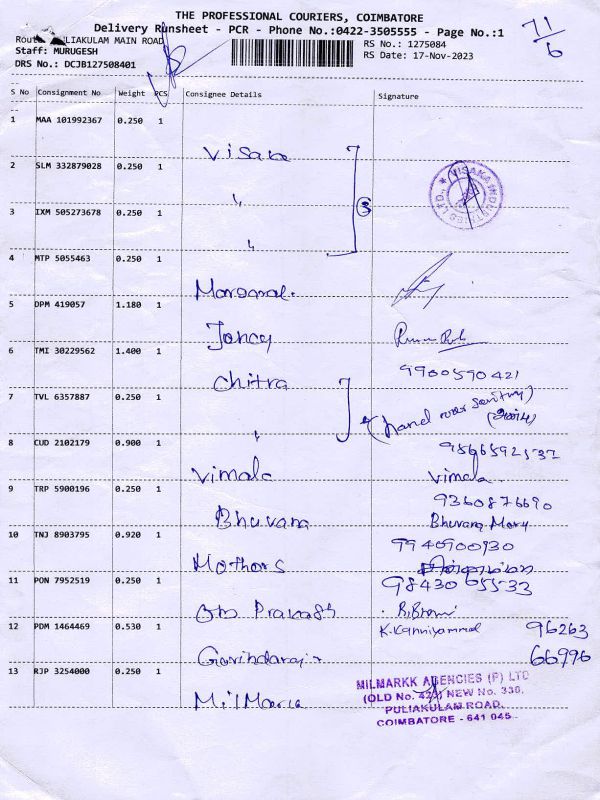 THE PROFESSIONAL COURIERS, COIMBATORE
Delivery Runsheet - PCR - Phone No.:0422-3505555 - Page No.:1
71/6
PULIAKULAM MAIN ROAD
Staff: MURUGESH
DRS No.: DCJB127508401
RS No.: 1275084
RS Date: 17-Nov-2023
S No Consignment No Weight PCS Consignee Details Signature
1 MAA 101992367 0.250 1 Visaka
2 SLM 332879028 0.250 1 "
3 IXM 505273678 0.250 1 "
3
VISAKA INDUSTRIES LTD.,
4 MTP 5055463 0.250 1
5 DPM 419057 1.180 1 Jancy
9900590421
6 TMI 30229562 1.400 1 Chitra
7 TVL 6357887 0.250 1 "
hand over
8 CUD 2102179 0.900 1 Vimala Vimala
9360876690
9 TRP 5900196 0.250 1 Bhuvana Bhuvana Mary
9940900930
10 TNJ 8903795 0.920 1 Mothers
9843065533
11 PON 7952519 0.250 1 Om Prakash
12 PDM 1464469 0.530 1 Govindaraj K.Kanniyammal 96263
66996
13 RJP 3254000 0.250 1
MILMARKK AGENCIES (P) LTD
(OLD No. 424) NEW No. 330,
PULIAKULAM ROAD,
COIMBATORE - 641 045.